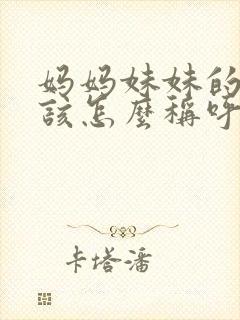 妈妈妹妹的
該怎麼稱呼
卡塔潘